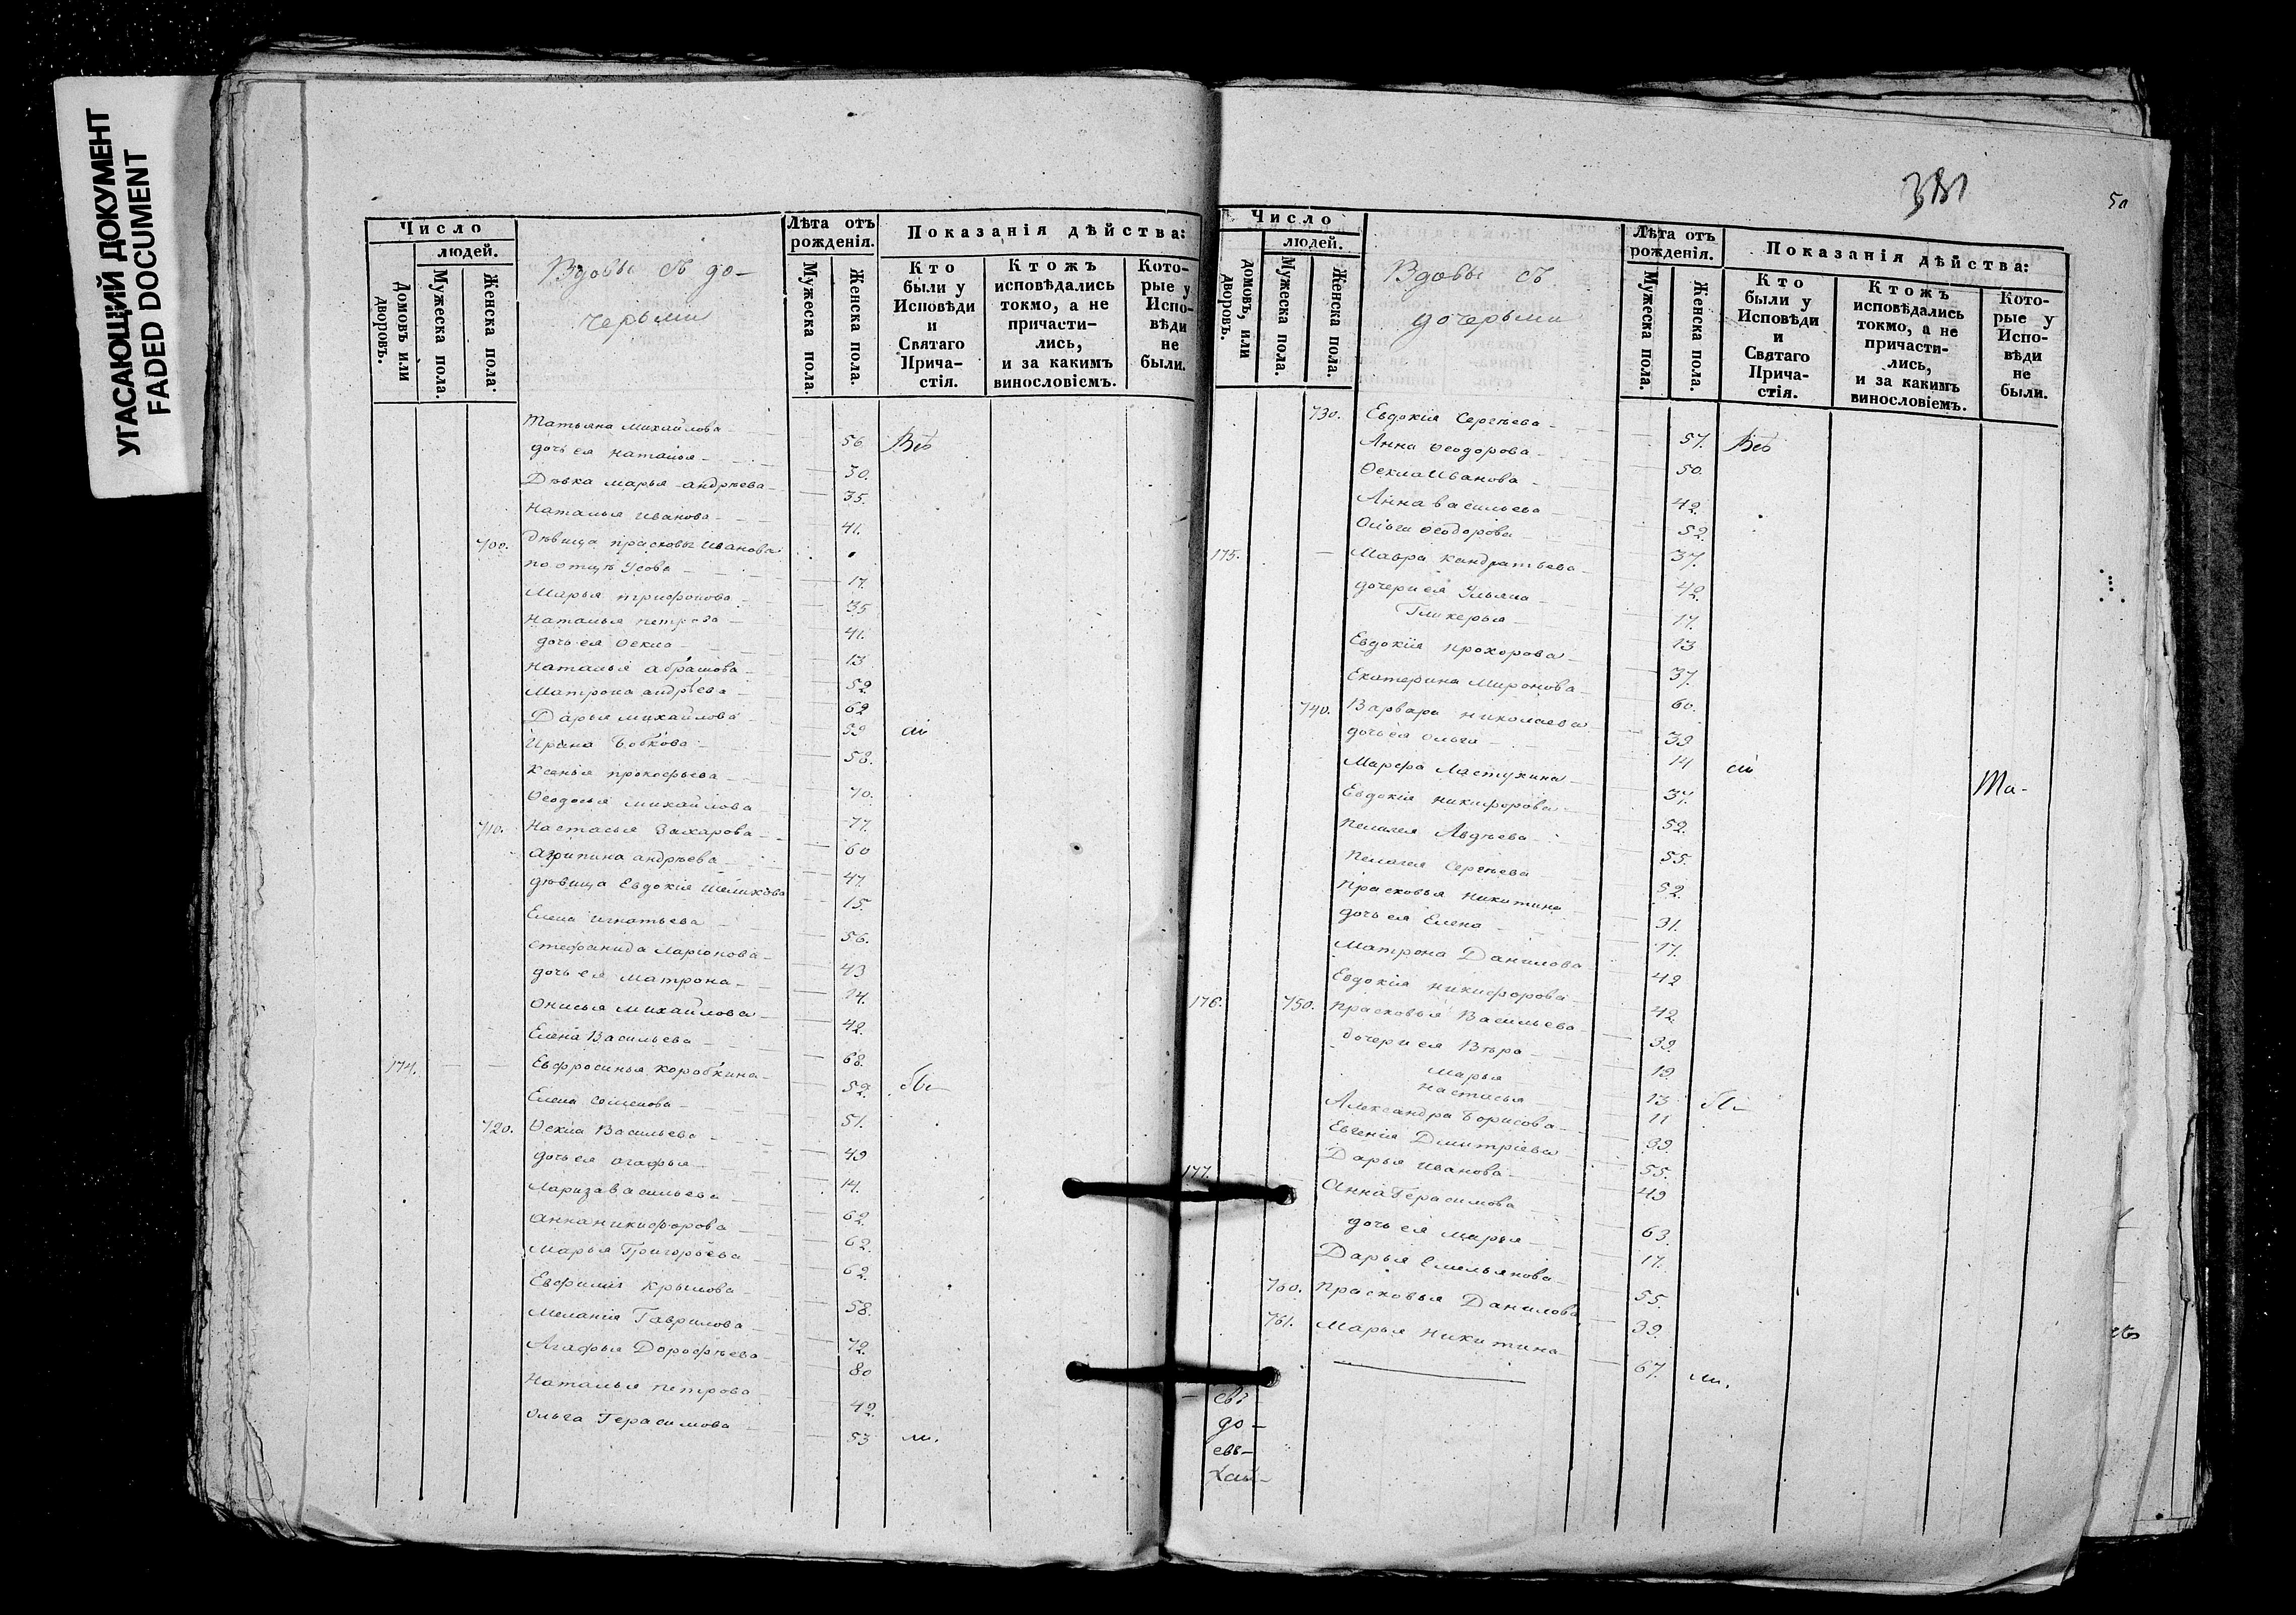 УГАСАЮЩИЙ ДОКУМЕНТ
FADED DOCUMENT
Число
людей.
Домовъ или дворовъ.
Мужеска пола.
Женска пола.
Вдовы съ до-
черьми
Лѣта отъ рожденія.
Мужеска пола.
Женска пола.
Показанія дѣйства:
Кто были у Исповѣди и Святаго Прича- стія.
Ктожъ исповѣдались токмо, а не причасти- лись, и за какимъ винословіемъ.
Кото- рые у Испо- вѣди не были.
Татьяна Михайлова 56
дочь ея Наталья 30.
Дѣвка Марья Андрѣева 35.
Наталья Иванова 41.
700. Дѣвица Прасковья Иванова
по отцѣ Усова 17.
Марья Трифонова 35
Наталья Петрова 41.
дочь ея Ѳекла 13
Наталья Абрамова 52
Матрона Андрѣева 62
Дарья Михайлова 59
Ирина Бобкова 58.
Ксенья Прокофьева 70.
Ѳеодосья Михайлова 77.
710. Настасья Захарова 60
Агрипина Андрѣева 47
дѣвица Евдокія Шелихова 15.
Елена Игнатьева 56.
Стефанида Ларіонова 43
дочь ея Матрона 14.
Онисья Михайлова 42.
Елена Васильева 68.
174. Евфросинья Коробкина 52.
Елена Семенова 51.
720. Ѳекла Васильева 49
дочь ея Агафья 14.
Лариза Васильева 62.
Анна Никифорова 62.
Марья Григорьева 62.
Евфимія Крылова 58.
Меланія Гаврилова 72.
Агафья Дорофѣева 80
Наталья Петрова 42.
Ольга Герасимова 53
381
50
Число
людей.
домовъ, или дворовъ.
Мужеска пола.
Женска пола.
Вдовы съ
дочерьми
Лѣта отъ рожденія.
Мужеска пола.
Женска пола.
Показанія дѣйства:
Кто были у Исповѣди и Святаго Прича- стія.
Ктожъ исповѣдались токмо, а не причасти- лись, и за какимъ винословіемъ.
Кото- рые у Испо- вѣди не были.
730. Евдокія Сергѣева 57.
Анна Ѳеодорова 50.
Ѳекла Иванова 42.
Анна Васильева 52.
Ольга Ѳеодорова 37.
175. Мавра Кандратьева 42.
дочери ея Ульяна 17.
Гликерья 13
Евдокія Прохорова 37.
Екатерина Миронова 60.
740. Варвара Николаева 39
дочь ея Ольга 14
Марфа Ластухина 37.
Евдокія Никифорова 52.
Пелагея Авдѣева 55.
Пелагея Сергѣева 52.
Прасковья Никитина 31.
дочь ея Елена 17.
Матрона Данилова 42
Евдокія Никифорова 42.
176. 750. Прасковья Васильева 39.
дочери ея Вѣра 19.
Марья 13
Настасья 11
Александра Борисова 39.
Евгенія Дмитріева 55.
177. Дарья Иванова 49
Анна Герасимова 63.
дочь ея Марья 17.
Дарья Емельянова 55.
760. Прасковья Данилова 39.
761. Марья Никитина 67.
до-